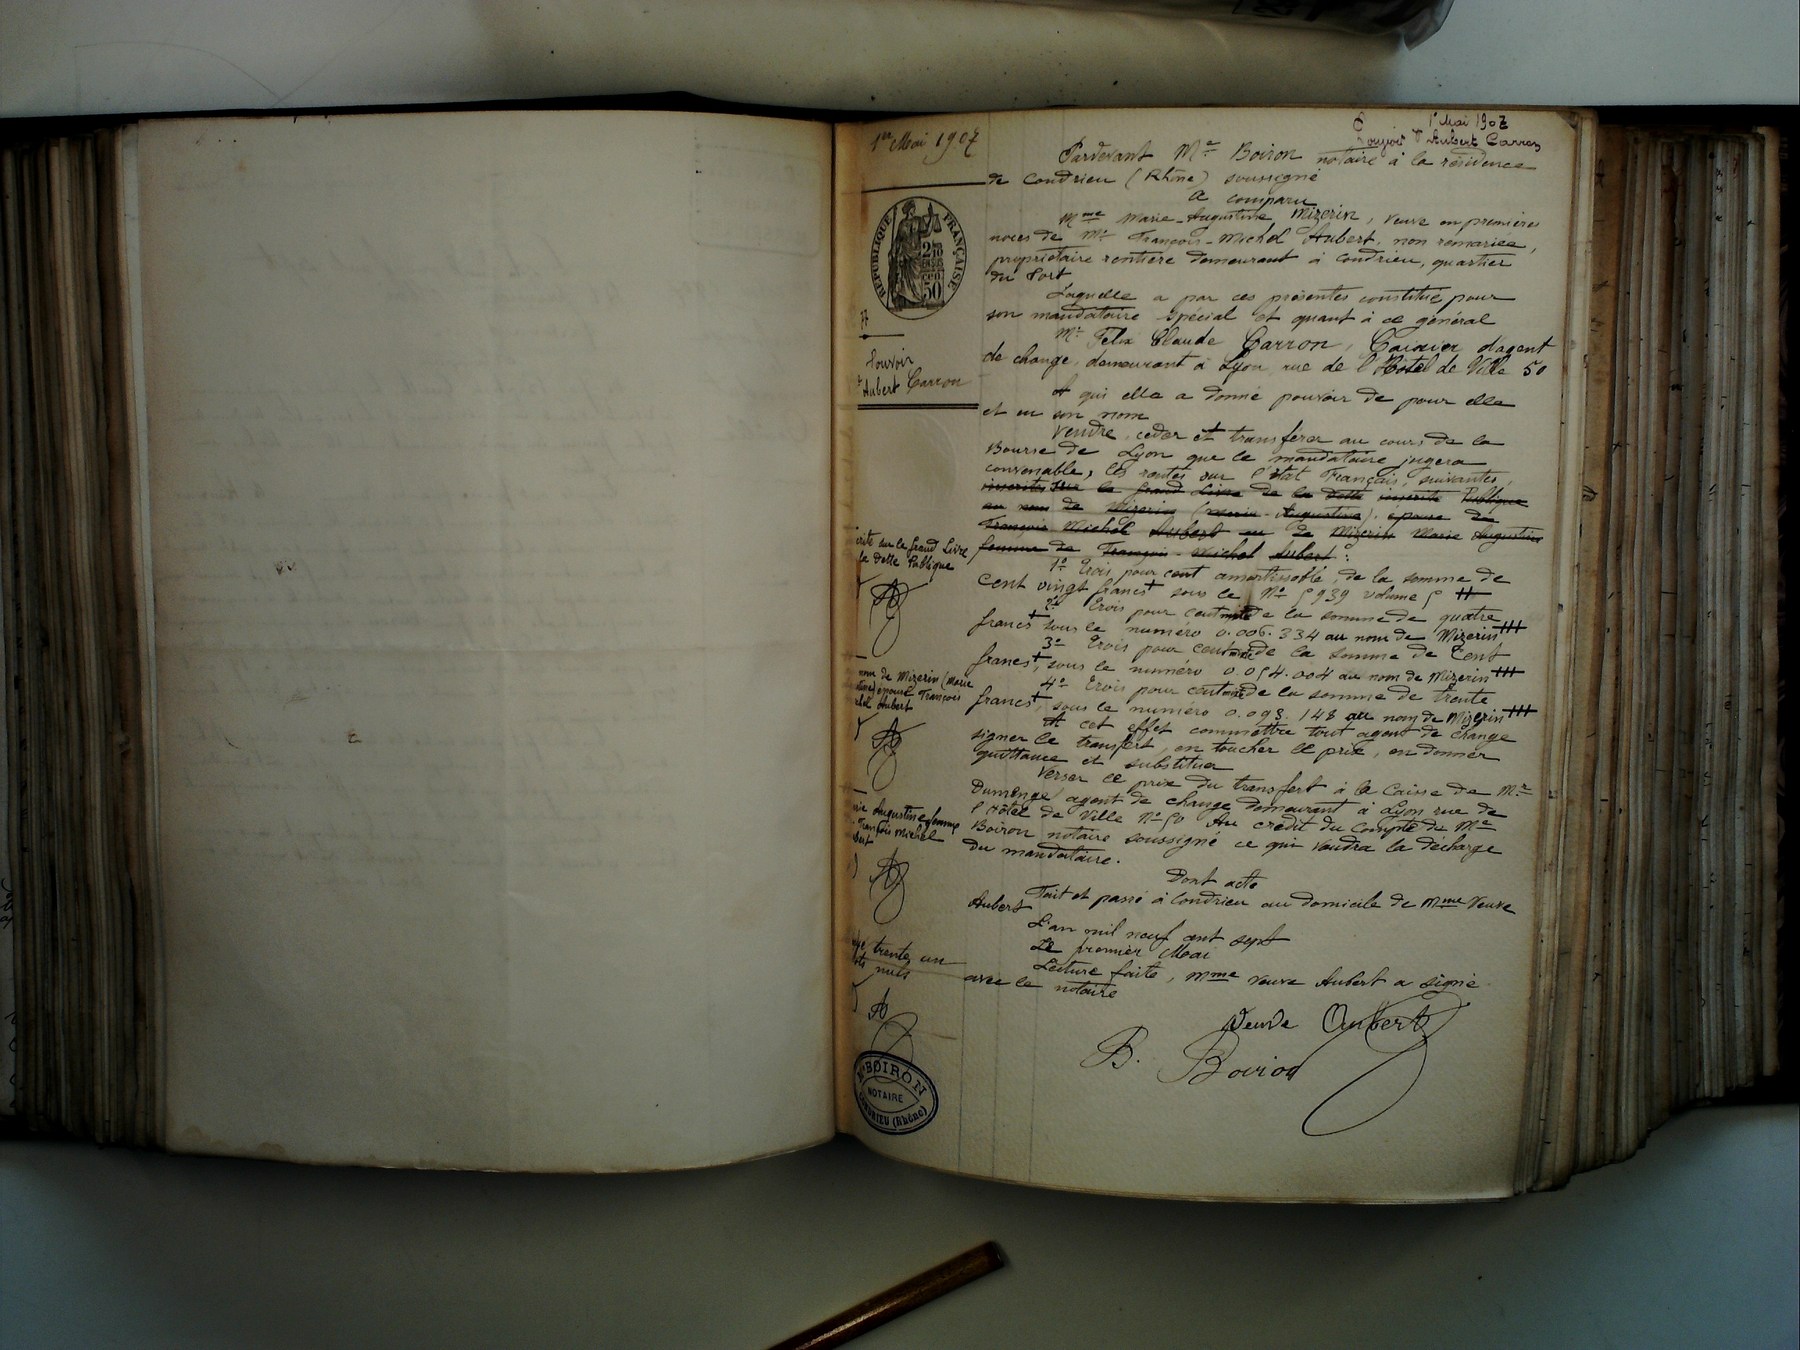 1er Mai 1907
1er Mai 1907
Pouvoir Vve Aubert Carron
RÉPUBLIQUE FRANÇAISE
2 50
77
Pouvoir
Aubert Carron
Pardevant Me Boiron notaire à la résidence
de Condrieu (Rhône) soussigné
A comparu
Mme Marie-Augustine Mizerin, veuve en premières
noces de Mr François-Michel Aubert, non remariée,
propriétaire rentière demeurant à Condrieu, quartier
du Port
Laquelle a par ces présentes constitué pour
son mandataire spécial et quant à ce général
Mr Felix Claude Carron, Caissier d'agent
de change, demeurant à Lyon, rue de l'Hôtel de Ville 50
A qui elle a donné pouvoir de pour elle
et en son nom
Vendre, céder et transférer au cours de la
Bourse de Lyon que le mandataire jugera
convenable, les rentes sur l'état Français, suivantes,
inscrites sur le grand Livre de la dette inscrite Publique
au nom de Mizerin (Marie-Augustine), épouse de
François Michel Aubert ou de Mizerin Marie Augustine
femme de François-Michel Aubert :
1º Trois pour cent amortissable, de la somme de
cent vingt francs + sous le Nº 5939 volume 5 ++
2º Trois pour cent de la somme de quatre
francs + sous le numéro 0.006.334 au nom de Mizerin +++
3º Trois pour cent de la somme de Cent
francs +, sous le numéro 0.054.004 au nom de Mizerin +++
4º Trois pour cent de la somme de trente
francs +, sous le numéro 0.093.148 au nom de Mizerin +++
A cet effet commettre tout agent de change
signer le transfert, en toucher le prix, en donner
quittance et substituer
Verser le prix du transfert à la Caisse de Mr
Dumenge agent de change demeurant à Lyon rue de
l'Hôtel de Ville Nº 50 Au crédit du Compte de Me
Boiron notaire soussigné ce qui vaudra la décharge
du mandataire.
Dont acte
Fait et passé à Condrieu au domicile de Mme Veuve
Aubert
L'an mil neuf cent sept
Le premier Mai
Lecture faite, Mme veuve Aubert a signé
avec le notaire
Veuve Aubert
B. Boiron
crite sur le grand Livre
de la Dette Publique
nom de Mizerin (Marie
stine) épouse François
chel Aubert
rie Augustine femme
François Michel
bert
trente un
ots nuls
Me BOIRON
NOTAIRE
CONDRIEU (Rhône)